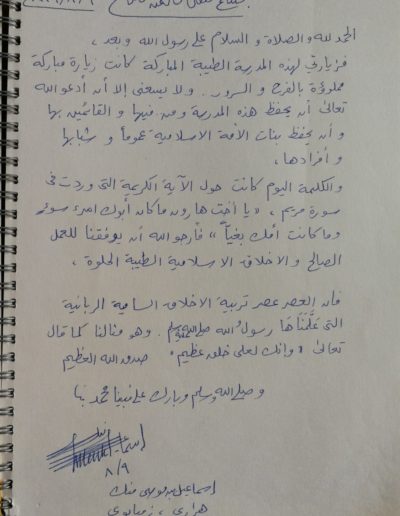 الحمد لله والصلاة و السلام على رسول الله و بعد ،
فزيارتي لهذه المدرسة الطيبة المباركة كانت زيارة مباركة
مملوءة بالفرح و السرور . و لا يسعني إلا أن أدعو الله
تعالى أن يحفظ هذه المدرسة ومن فيها و القائمين بها
و أن يحفظ بنات الأمة الاسلامية عموما و شبابها
و أفرادها ،
و الكلمة اليوم كانت حول الآية الكريمة التي وردت في
سورة مريم ، « يا أخت هارون ما كان أبوك امرء سوء
وما كانت أمك بغيا » فأرجو الله أن يوفقنا للعمل
الصالح و الاخلاق الاسلامية الطيبة الحلوة ،
فان العصر عصر تربية الاخلاق السامية الربانية
التي عَلَّمَنَاهَا رسول الله صلى الله عليه وسلم . وهو مثالنا كما قال
تعالى « وإنك لعلى خلق عظيم » صدق الله العظيم
و صلى الله وسلم وبارك على نبينا محمد
٨/٩
إسماعيل بن موسى منك
هراري ، زمبابوي